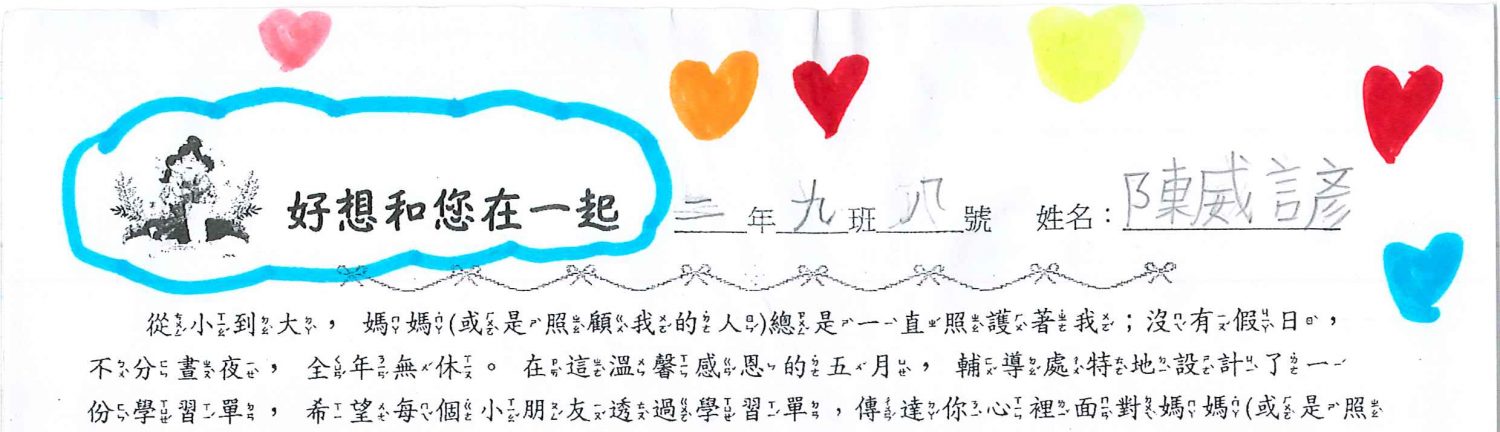 好想和您在一起 二年九班八號 姓名：陳威諺
從小到大，媽媽(或是照顧我的人)總是一直照護著我；沒有假日，
不分晝夜，全年無休。在這溫馨感恩的五月，輔導處特地設計了一
份學習單，希望每個小朋友透過學習單，傳達你心裡面對媽媽(或是照